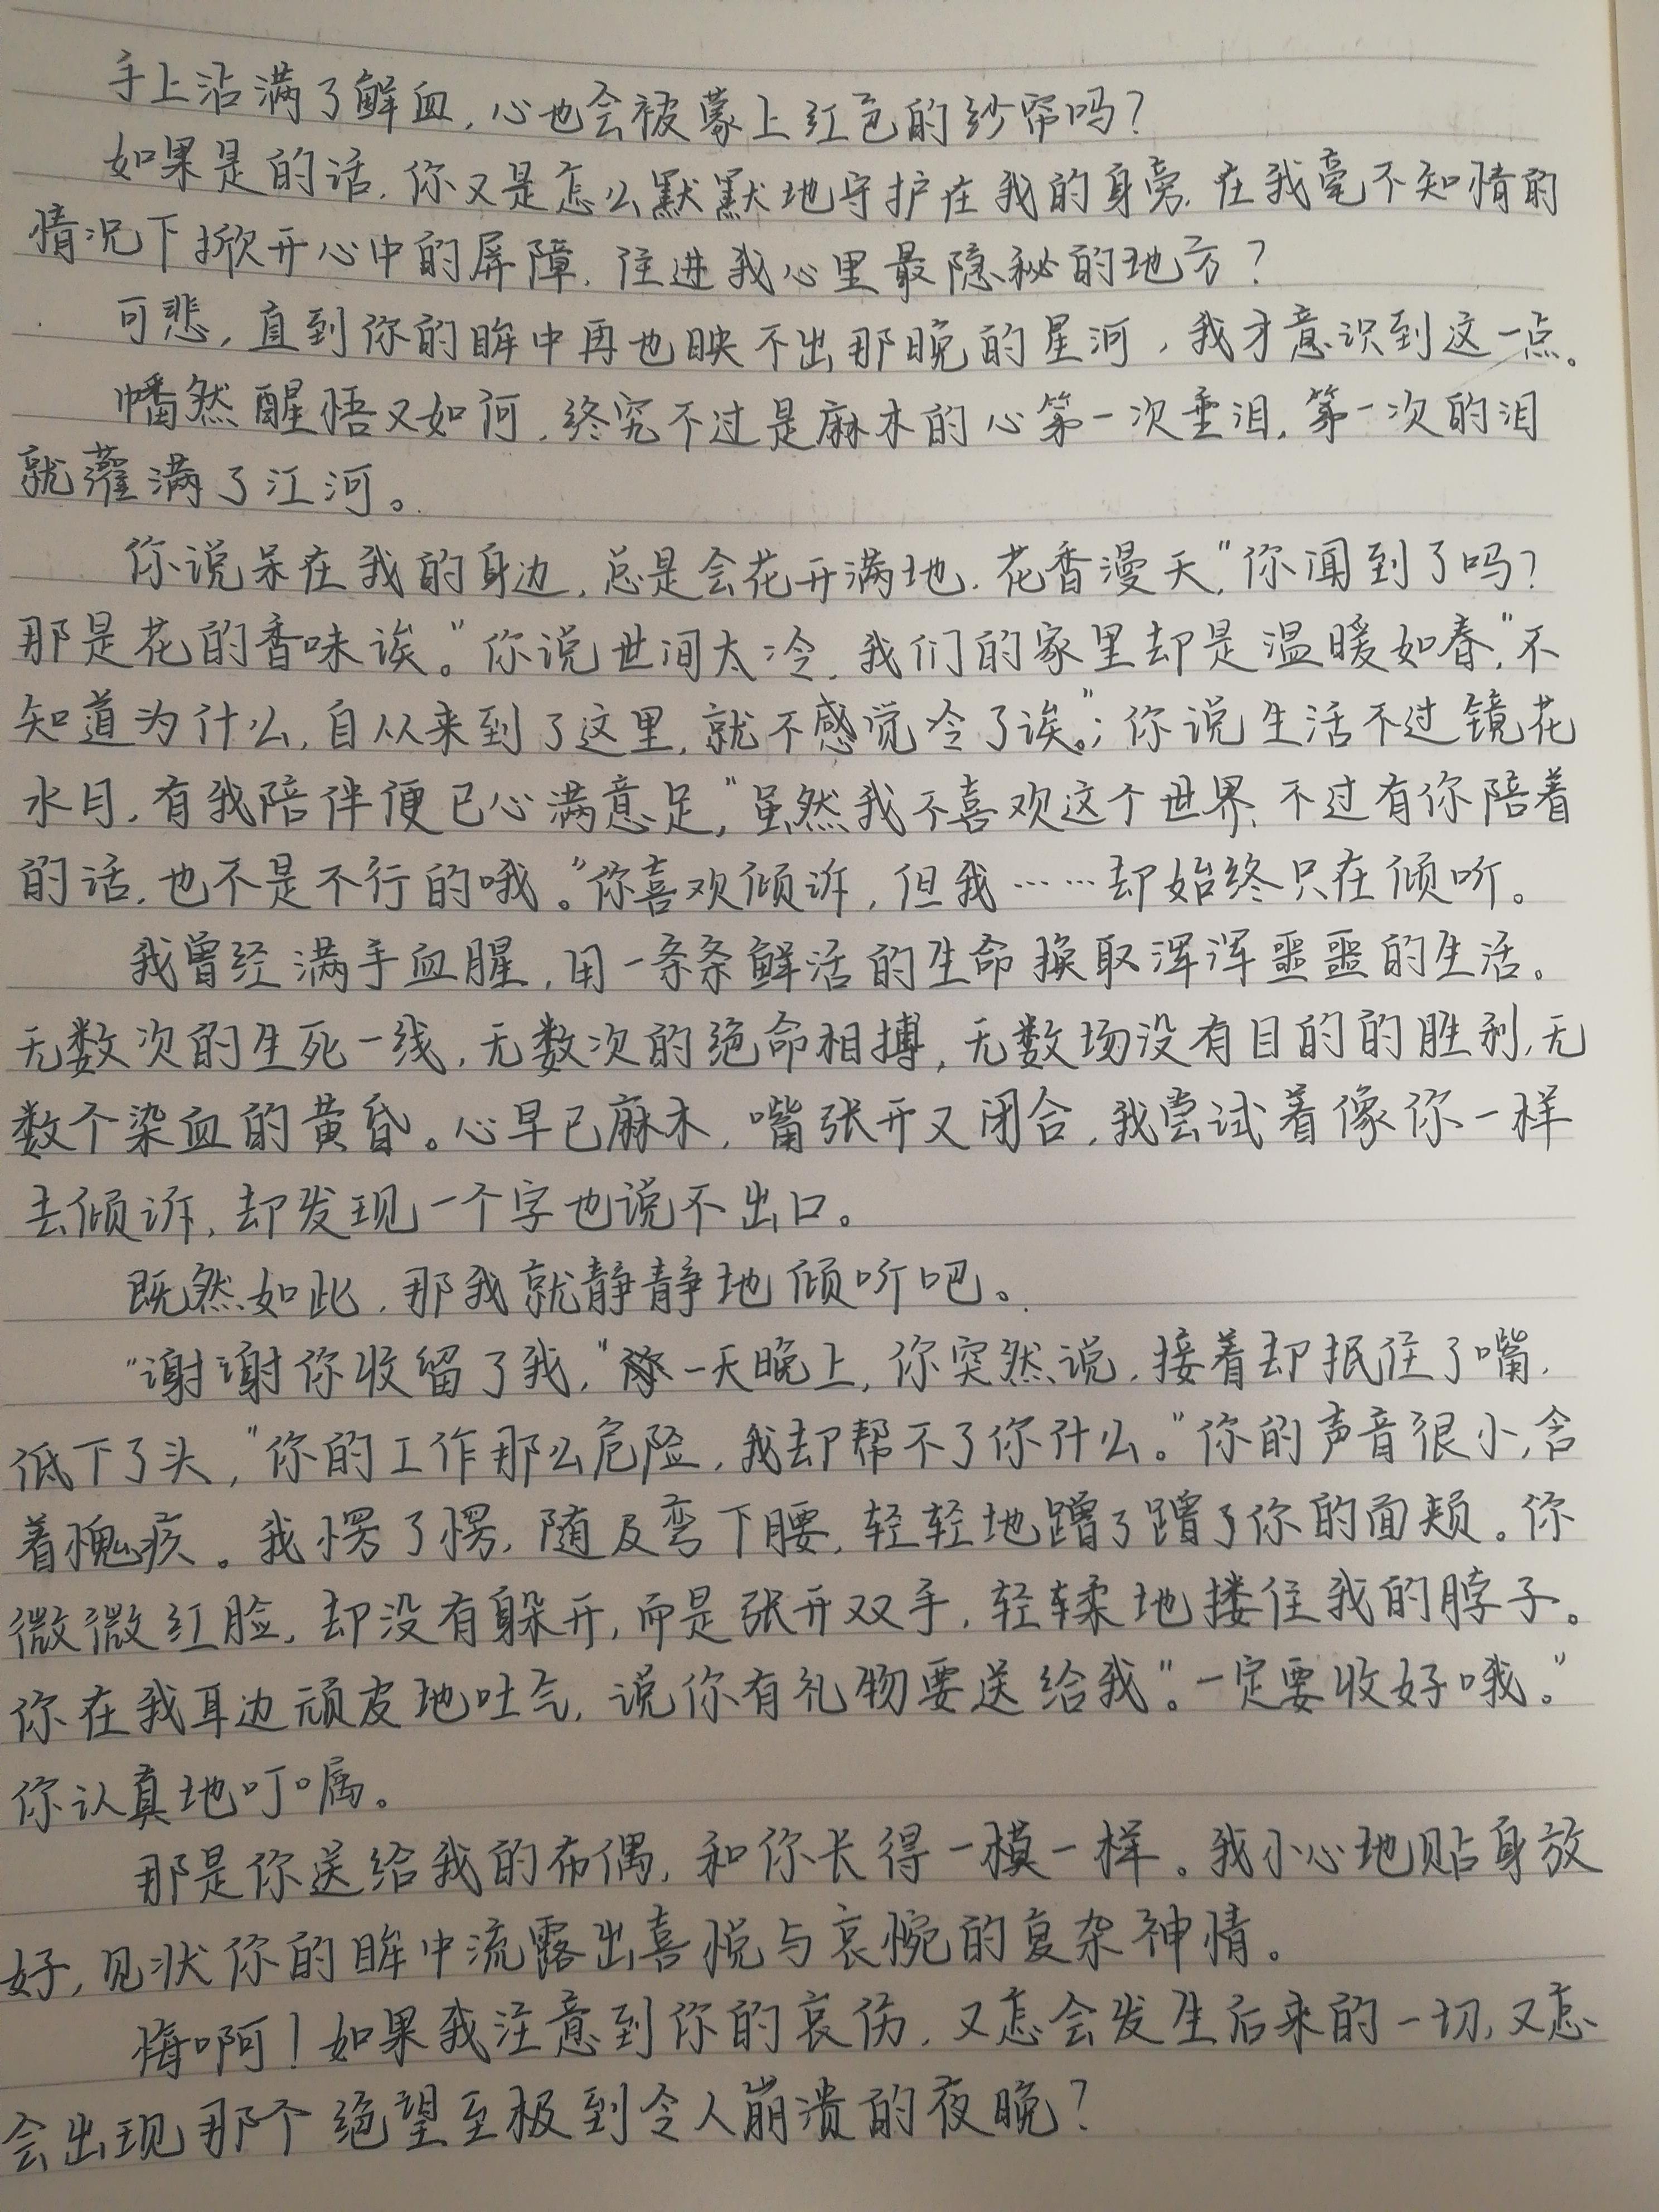 手上沾满了鲜血,心也会被蒙上红色的纱帘吗?
如果是的话,你又是怎么默默地守护在我的身旁,在我毫不知情的
情况下掀开心中的屏障,住进我心里最隐秘的地方?
可悲,直到你的眸中再也映不出那晚的星河,我才意识到这一点。
幡然醒悟又如何,终究不过是麻木的心第一次垂泪,第一次的泪
就灌满了江河。
你说呆在我的身边,总是会花开满地,花香漫天,"你闻到了吗?
那是花的香味诶。"你说世间太冷,我们的家里却是温暖如春,"不
知道为什么,自从来到了这里,就不感觉冷了诶。";你说生活不过镜花
水月,有我陪伴便已心满意足,"虽然我不喜欢这个世界,不过有你陪着
的话,也不是不行的哦。"你喜欢倾诉,但我……却始终只在倾听。
我曾经满手血腥,用一条条鲜活的生命换取浑浑噩噩的生活。
无数次的生死一线,无数次的绝命相搏,无数场没有目的的胜利,无
数个染血的黄昏。心早已麻木,嘴张开又闭合,我尝试着像你一样
去倾诉,却发现一个字也说不出口。
既然如此,那我就静静地倾听吧。
"谢谢你收留了我,"一天晚上,你突然说,接着却抿住了嘴,
低下了头,"你的工作那么危险,我却帮不了你什么。"你的声音很小,含
着愧疚。我愣了愣,随及弯下腰,轻轻地蹭了蹭了你的面颊。你
微微红脸,却没有躲开,而是张开双手,轻轻柔地搂住我的脖子。
你在我耳边顽皮地吐气,说你有礼物要送给我"。一定要收好哦。"
你认真地叮嘱。
那是你送给我的布偶,和你长得一模一样。我小心地贴身放
好,见状你的眸中流露出喜悦与哀惋的复杂神情。
悔啊!如果我注意到你的哀伤,又怎会发生后来的一切,又怎
会出现那个绝望至极到令人崩溃的夜晚?